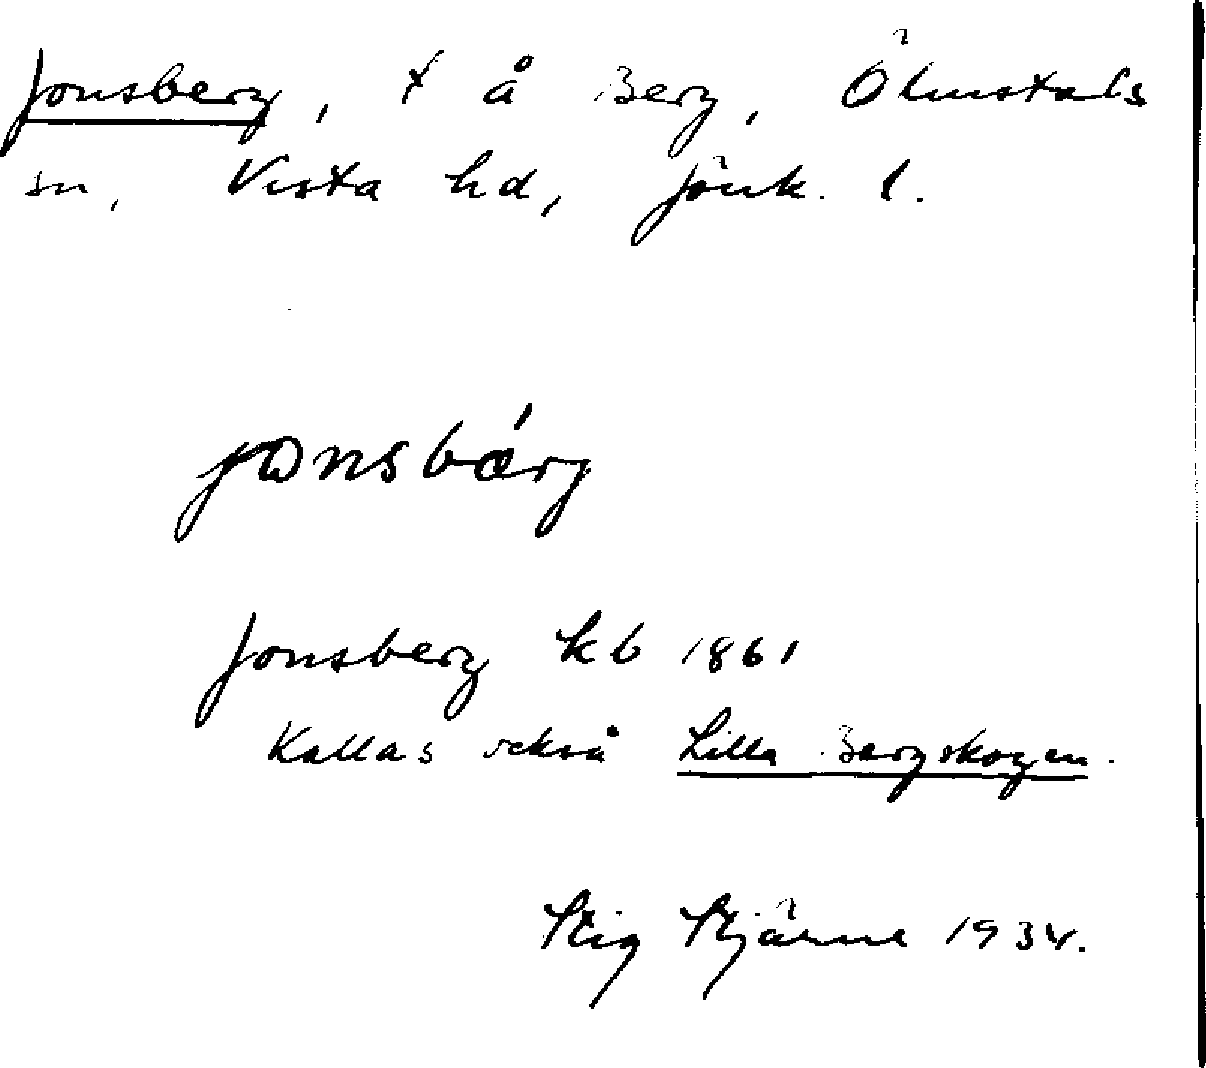 Jonsberg, t å Berg, Ölmstads
sn, Vista hd, Jönk. l.
jɷnsbǽrj
Jonsberg kb 1861
Kallas också Lilla Bergskogen.
Stig Stjärne 1934.